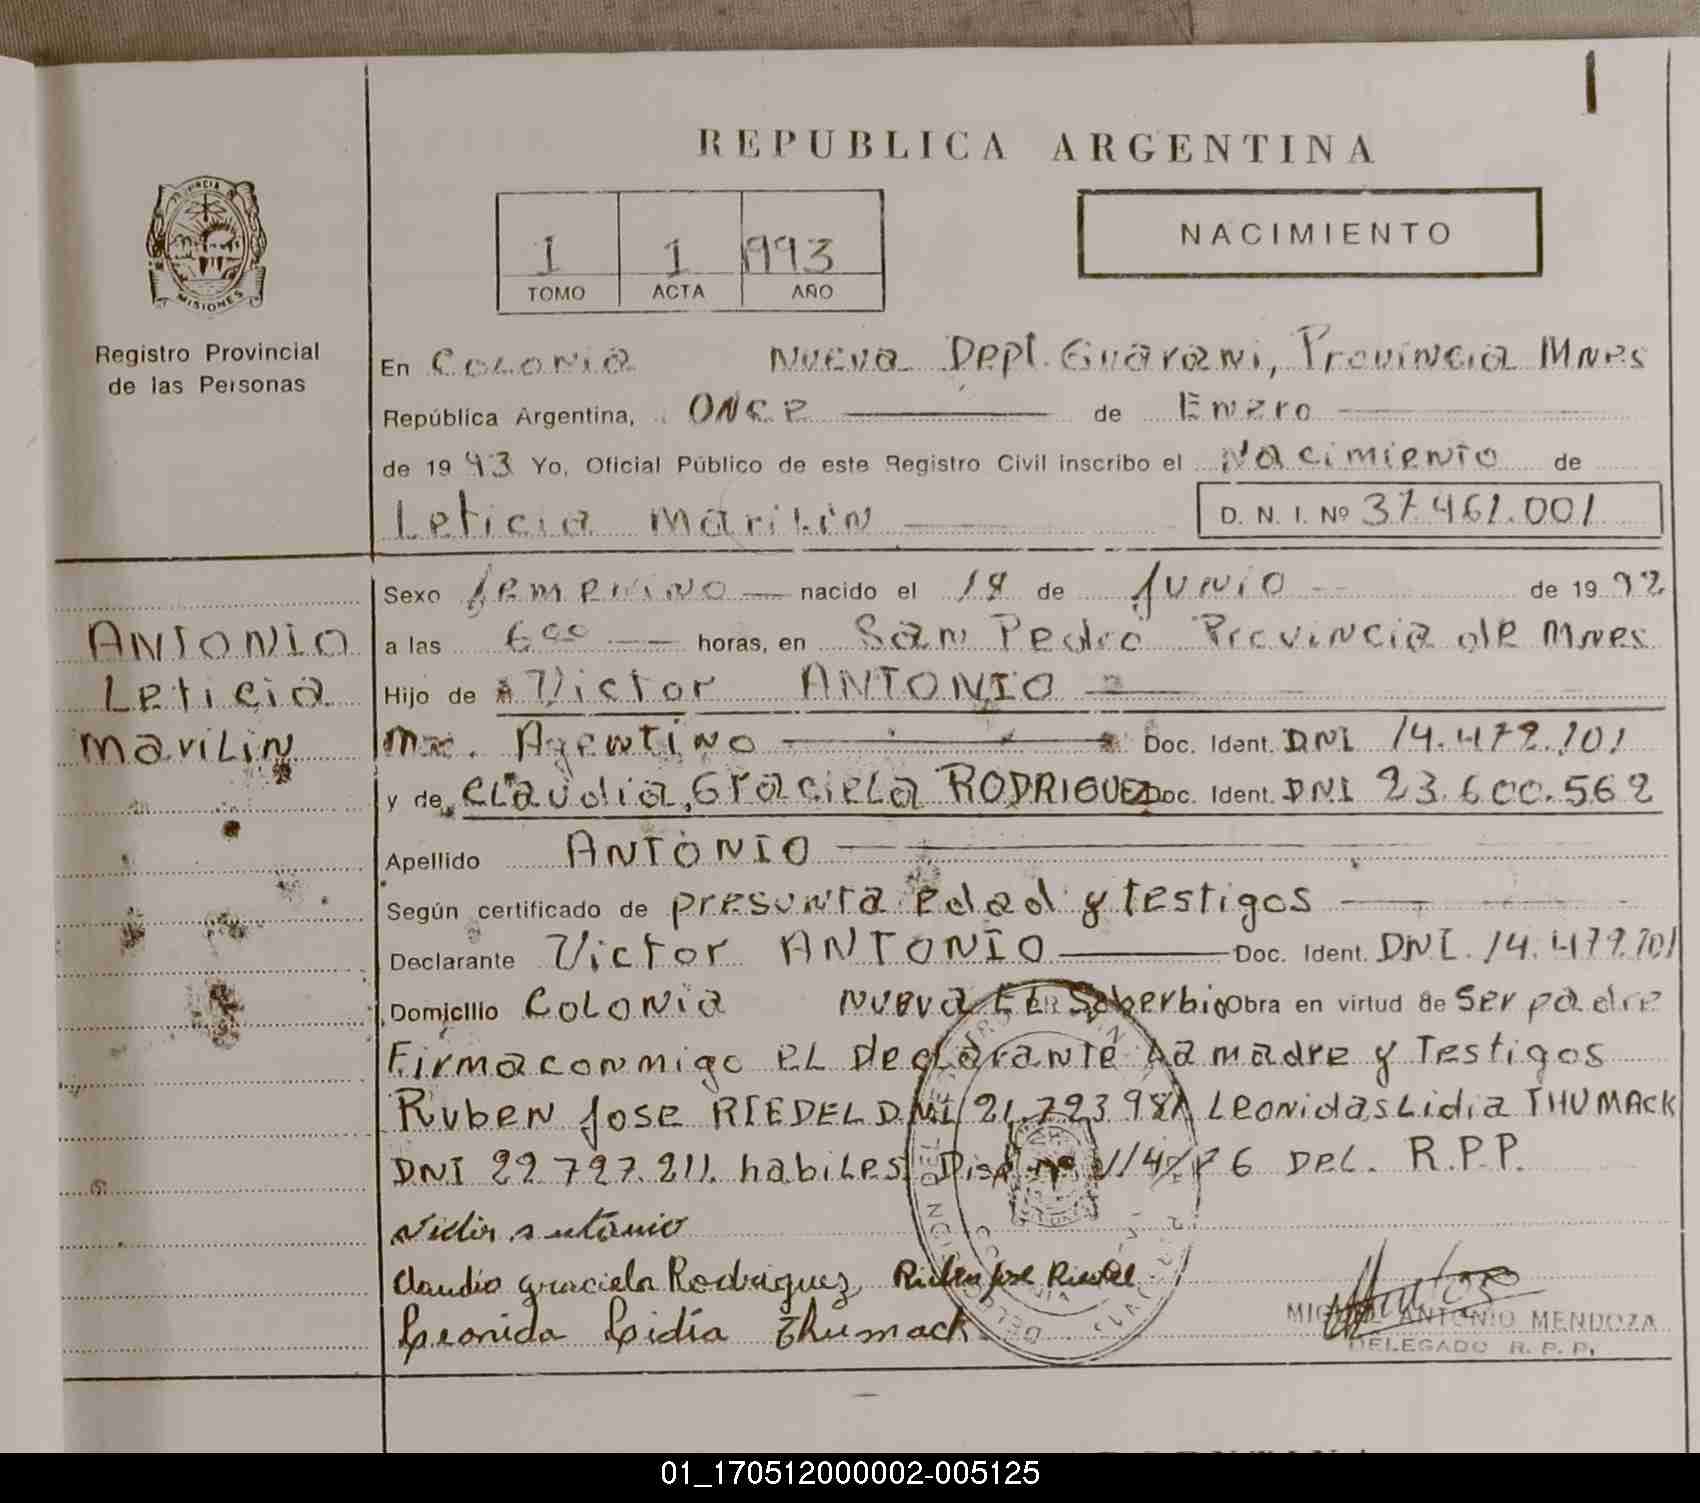 REPUBLICA ARGENTINA
PROVINCIA
MISIONES
Registro Provincial
de las Personas
1 1 1993
TOMO ACTA AÑO
NACIMIENTO
En Colonia Nueva Dept. Guarani, Provincia Mnes
República Argentina, once de Enero
de 19 93 Yo, Oficial Público de este Registro Civil inscribo el Nacimiento de
Leticia Marilin D. N. I. Nº 37.461.001
ANTONIO
Leticia
Marilin
Sexo femenino nacido el 18 de Junio de 19 92
a las 6 00 horas, en San Pedro Provincia de Mnes
Hijo de Victor ANTONIO
Agentino Doc. Ident. DNI 14.479.101
y de Claudia Graciela RODRIGUEZ Doc. Ident. DNI 23.600.562
Apellido ANTONIO
Según certificado de presunta edad y testigos
Declarante Victor ANTONIO Doc. Ident. DNI. 14.479.101
Domicilio Colonia Nueva El Soberbio Obra en virtud de Ser padre
Firma conmigo el declarante La madre y Testigos
Ruben Jose RIEDEL DNI 21.723.981 Leonidas Lidia THUMACK
DNI 22.727.211. habiles. Disp Nº del. R.P.P.
Victor Antonio
Claudia Graciela Rodriguez Ruben Jose Riedel
Leonida Lidia Thumack
MIGUEL ANTONIO MENDOZA
DELEGADO R. P. P.
01_170512000002-005125